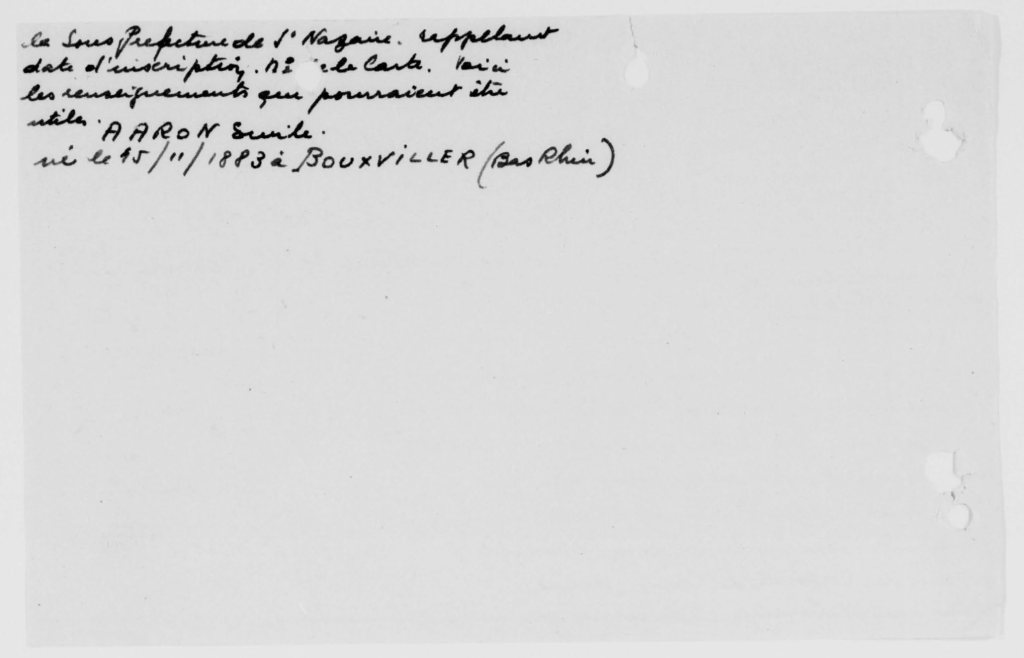 la Sous Prefecture de St Nazaire. rappelant
date d'inscription. N° de la Carte. Voici
les renseignements qui pourraient être
utiles. AARON Emile.
né le 15/11/1883 à BOUXVILLER (Bas Rhin)